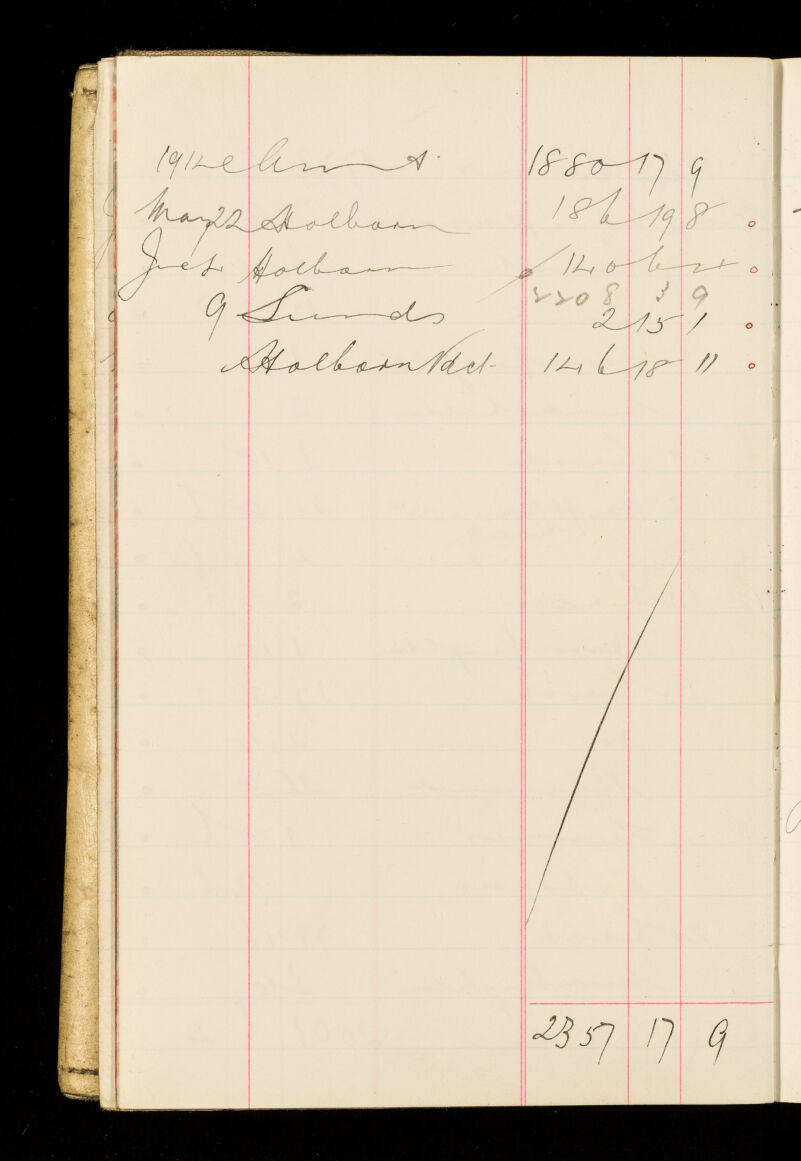 1914 1880 17 9
May 22 Holborn 186 19 8
June 4 Holborn 140 6 4
2208 3 9
9 Sunds 2 15 1
Holborn Vdct 146 18 11
2357 17 9